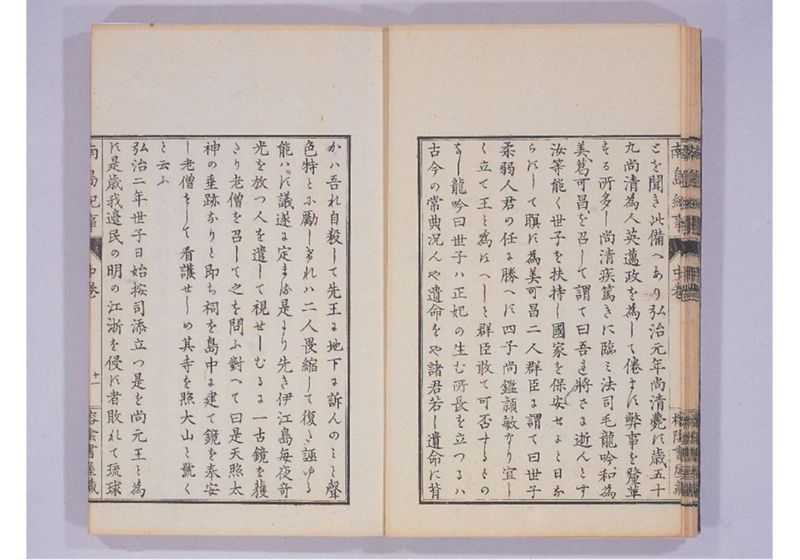 とを聞き此備へあり弘治元年尚清薨す歳五十
九尚清為人英邁政を為して倦ます弊事を釐革
する所多し尚清疾篤きに臨ミ法司毛龍吟和為
美葛可昌を召して謂て曰吾れ將さに逝んとす
汝等能く世子を扶持し國家を保安せよと日な
らにして瞑す為美可昌二人群臣に謂て曰世子
柔弱人君の任に勝へす四子尚鑑頴敏なり宜し
く立て王と為すへしと群臣敢て可否するもの
なし龍吟曰世子ハ正妃の生む所長を立つるハ
古今の常典況んや遺命をや諸君若し遺命に背
かハ吾れ自殺して先王に地下に訴んのミと聲
色特とに勵しけれハ二人畏縮して復た誣ゆる
能ハす議遂に定まる是より先き伊江島毎夜奇
光を放つ人を遣して視せしむるに一古鏡を獲
たり老僧を召して之を問ふ對へて曰是天照太
神の垂跡なりと即ち祠を島中に建て鏡を奉安
し老僧をして看護せしめ其寺を照太山と號く
と云ふ
弘治二年世子日始按司添立つ是を尚元王と為
す是歳我邊民の明の江浙を侵す者敗れて琉球
南島紀事 中巻 十一